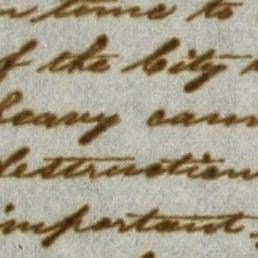 time to
of the City
heavy cann
destruction
important